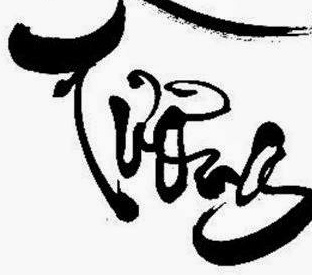 Tường